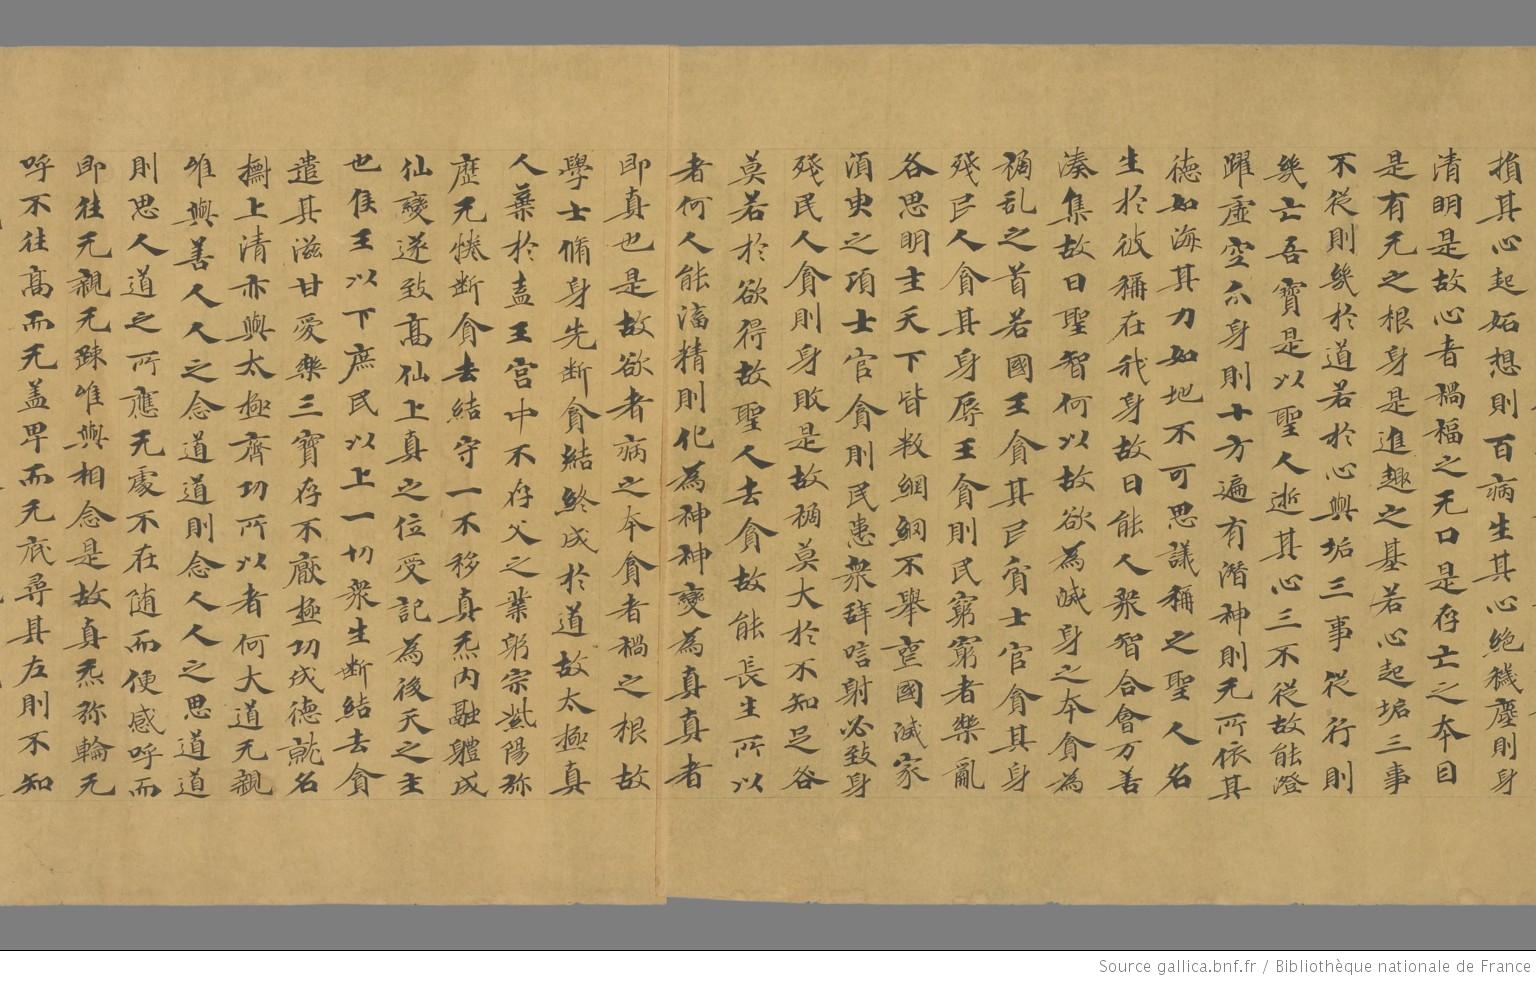 指其心起妬想則百病生其心絶穢塵則身
清明是故心者禍福之无口是存亡之本目
是有无之根身是進趣之基若心起垢三事
不従則㡬於道若於心與垢三事従行則
㡬亡吾寳是以聖人逝其心三不従故能澄
躍虛空分身則十方遍有潛神則无所依其
徳如海其力如地不可思議稱之聖人名
生於彼稱在我身故曰能人衆智合會万善
湊集故曰聖智何以故欲為滅身之本貪為
禍乱之首若國王貪其臣貧士官貪其身
殘民人貪其身辱王貪則民窮窮者樂亂
各思明主天下皆敕網網不舉壹國滅家
湏臾之項士官貪則民恚衆詳唁射必致身
殘民人貪則身敗是故禍莫大於不知足咎
莫若於欲得故聖人去貪故能長生所以
者何人能畜精則化為神神變為真真者
即真也是故欲者病之本貪者禍之根故
學士脩身先断貪結終成於道故太極真
人棄於盖王宫中不存父之業躬宗紫陽弥
歴无惓断貪去結守一不移真炁内融軆成
仙變遂致髙仙上真之位受記為後天之主
也隹王以下庶民以上一切衆生断結去貪
遣其滋甘愛樂三寳存不厭極功成徳就名
撫上清亦與太極齊功所以者何大道无親
唯與善人人之念道道則念人人之思道道
則思人道之所應无處不在随而使感呼而
即往无親无踈唯與相念是故真炁弥輪无
呼不往髙而无盖卑而无底尋其左則不知